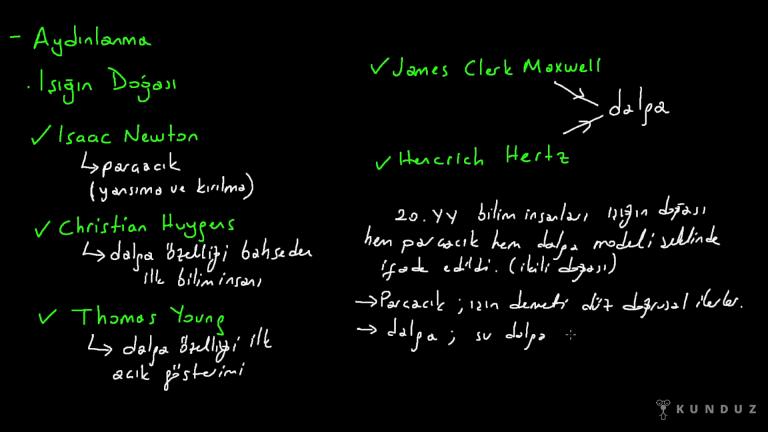 - Aydınlanma
. Işığın Doğası
✓ Isaac Newton
↳ parçacık
(yansıma ve kırılma)
✓ Christian Huygens
↳ dalga özelliği bahseden
ilk bilim insanı
✓ Thomas Young
↳ dalga özelliği ilk
açık gösterimi
✓ James Clerk Maxwell
dalga
✓ Hencrich Hertz
20. YY bilim insanları ışığın doğası
hem parçacık hem dalga modeli şeklinde
ifade edildi. (ikili doğası)
→ Parçacık ; ışın demeti düz doğrusal ilerler.
→ dalga ; su dalga
KUNDUZ